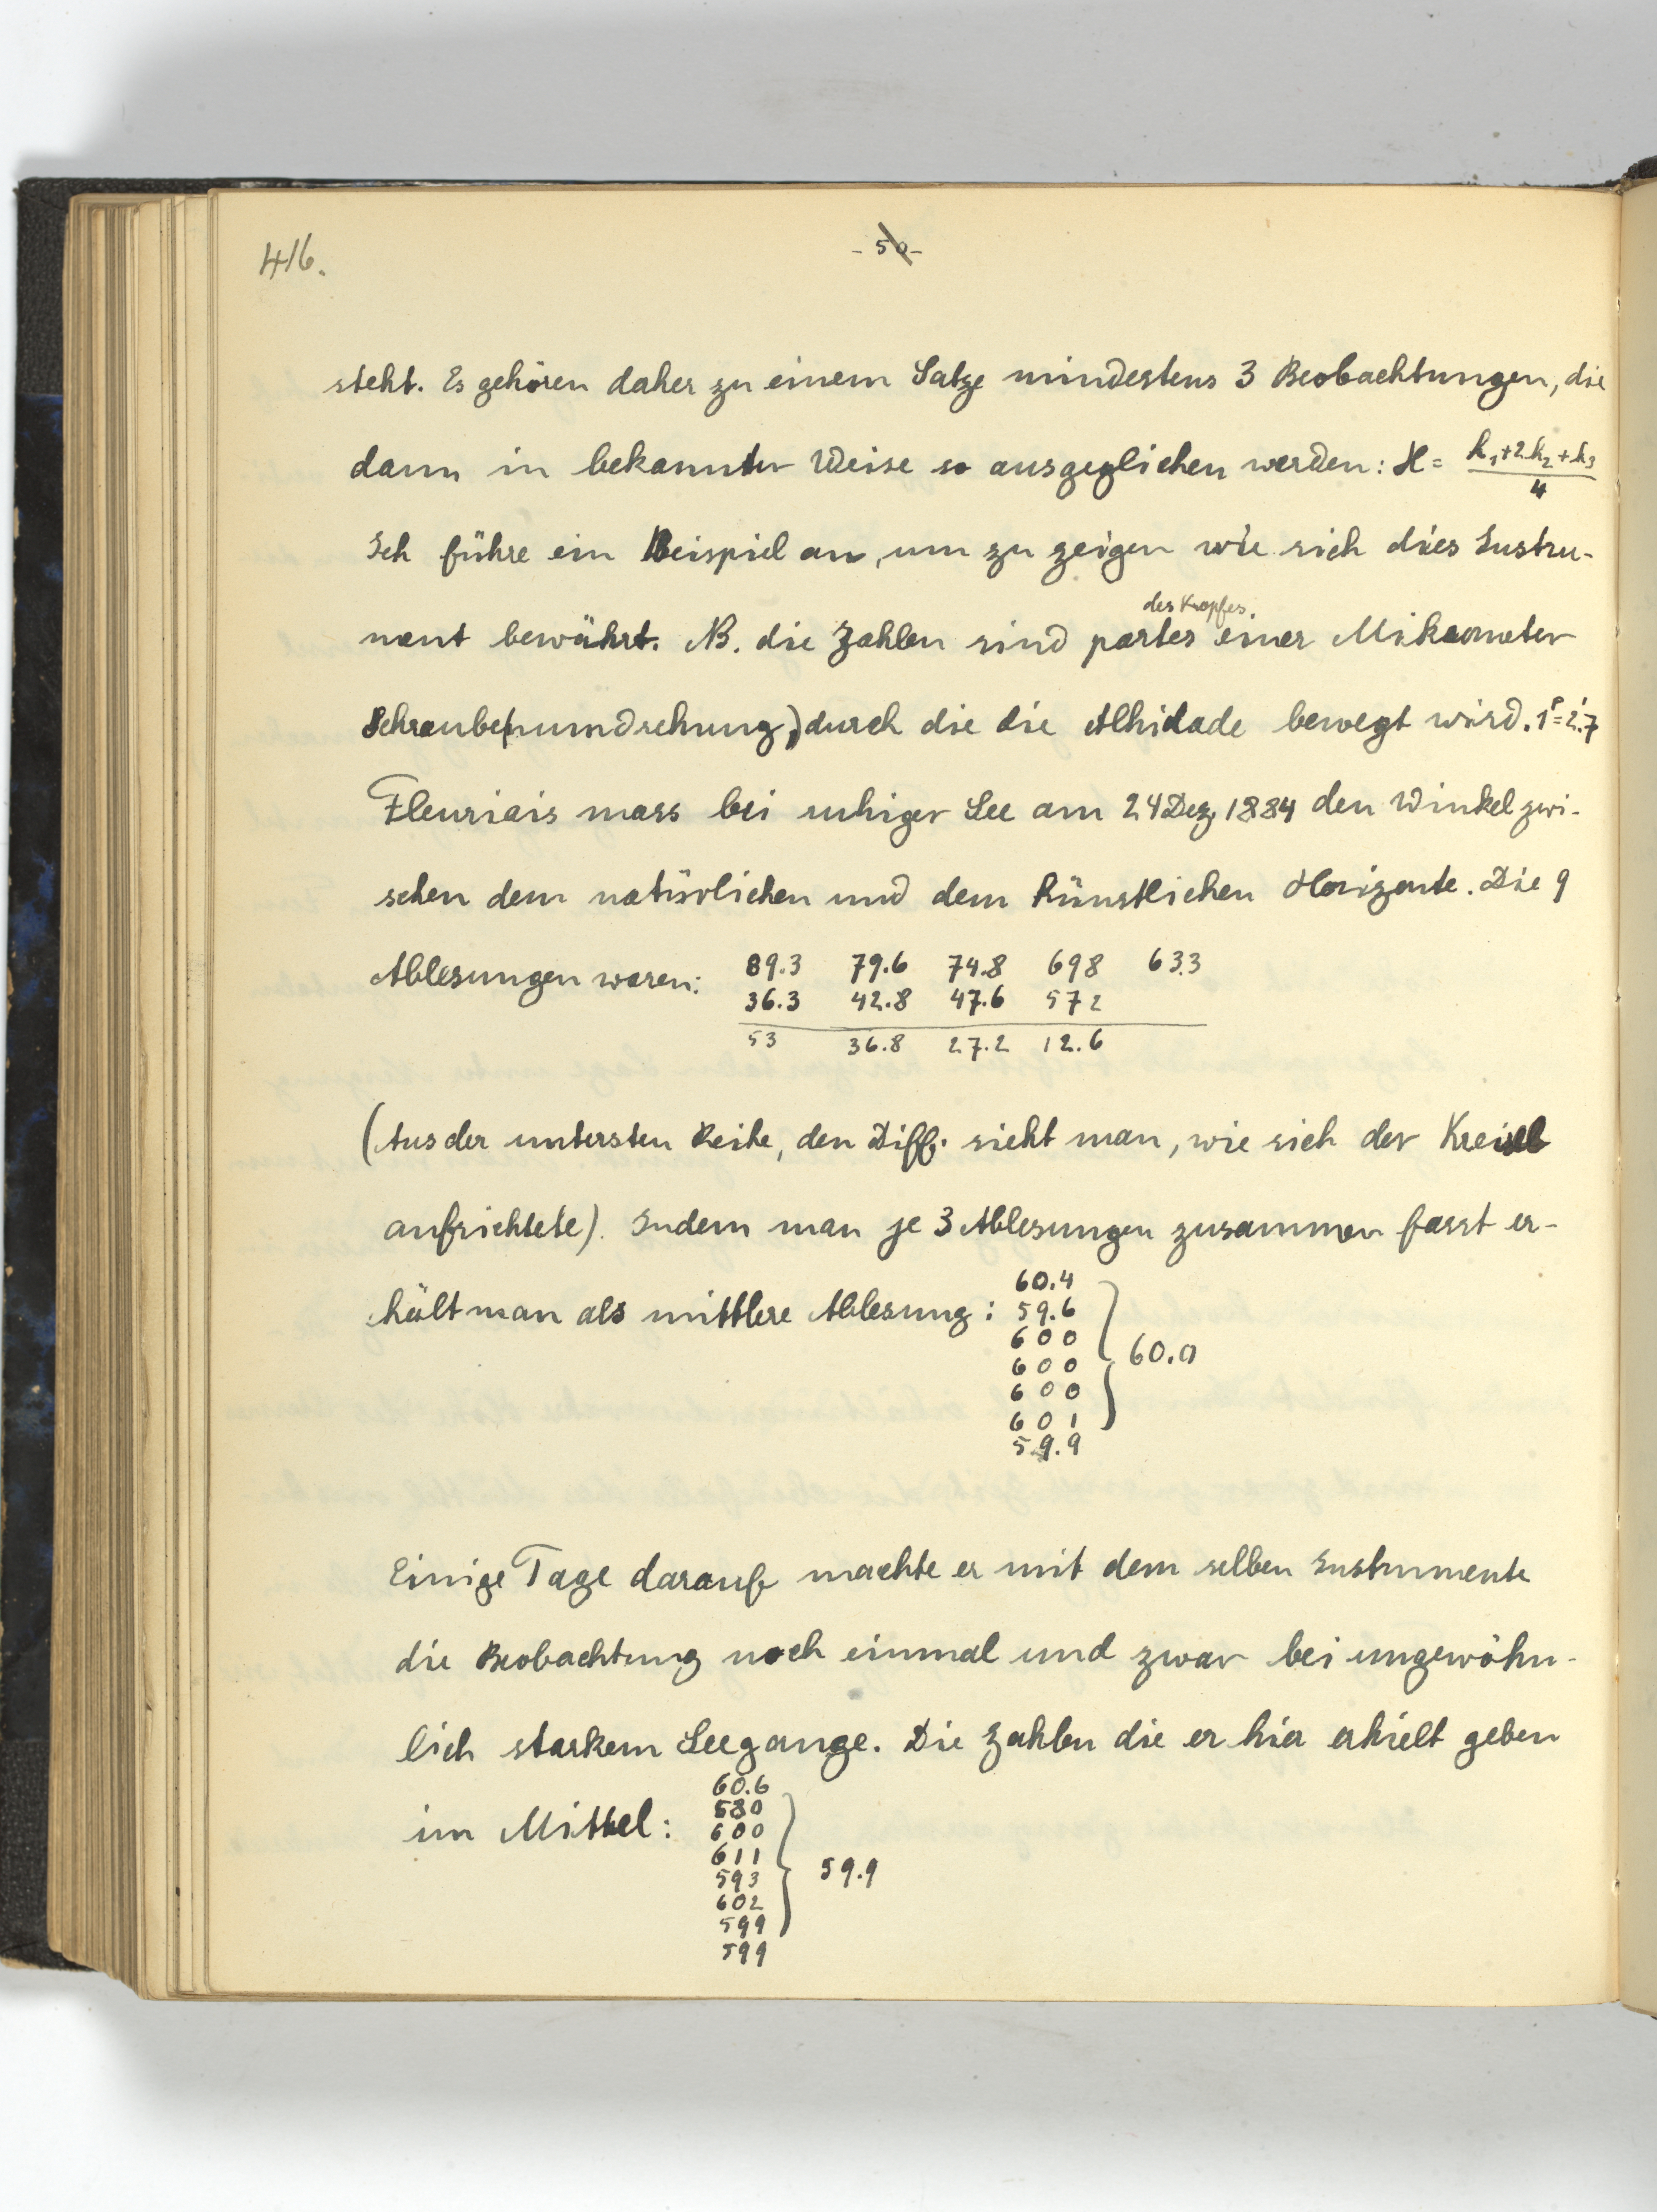 416.
- 50 -
steht. Es gehören daher zu einem Satze mindestens 3 Beobachtungen, die
dann in bekannter Weise so ausgeglichen werden: H = (h₁+2h₂+h₃)/4
Ich führe ein Beispiel an, um zu zeigen wie sich dies Instru-
ment bewährt. NB. die Zahlen sind partes des Kopfes einer Mikrometer
Schrauben(umdrehung), durch die die Alhidade bewegt wird. 1ᵖ=2'.7
Fleuriais mass bei ruhiger See am 24 Dez. 1884 den Winkel zwi-
schen dem natürlichen und dem künstlichen Horizonte. Die 9
Ablesungen waren: 89.3 79.6 74.8 698 63.3
36.3 42.8 47.6 572
53 36.8 27.2 12.6
(Aus der untersten Reihe, den Diff. sieht man, wie sich der Kreisel
aufrichtete). Indem man je 3 Ablesungen zusammen fasst er-
hält man als mittlere Ablesung:
60.4
59.6
600
600
600
601
59.9
60.0
Einige Tage darauf machte er mit dem selben Instrumente
die Beobachtung noch einmal und zwar bei ungewöhn-
lich starkem Seegange. Die Zahlen die er hier erhielt geben
im Mittel:
60.6
580
600
611
593
602
599
599
59.9